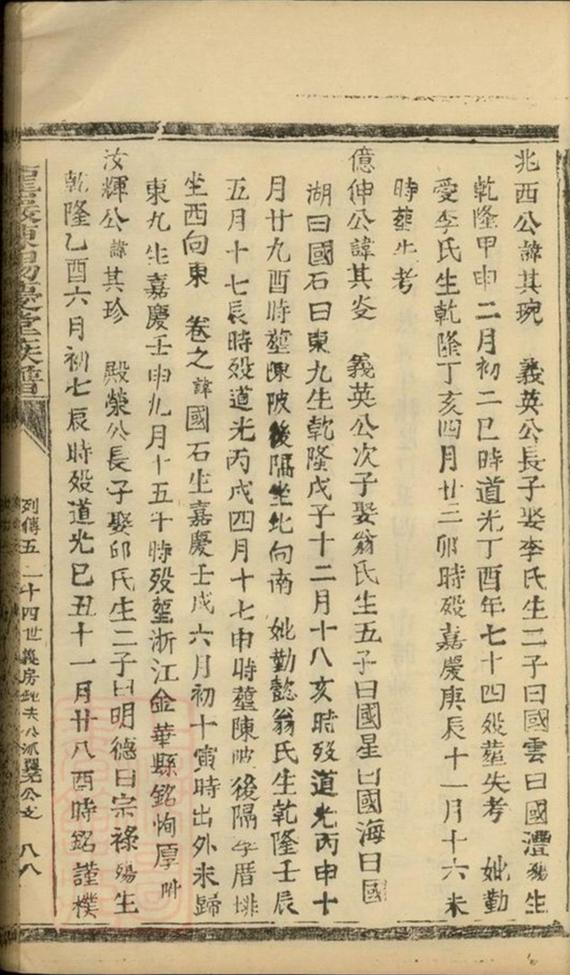 兆西公諱其琬　義英公長子娶李氏生二子曰國雲曰國灃殤生
乾隆甲申二月初二巳時道光丁酉年七十四歿塟失考　妣勤
愛李氏生乾隆丁亥四月廿三卯時歿嘉慶庚辰十一月十六未
時塟失考
億伸公諱其炎　義英公次子娶翁氏生五子曰國星曰國海曰國
湖曰國石曰東九生乾隆戊子十二月十八亥時歿道光丙申十
月廿九酉時塟陳陂後隔坐北向南　妣勤懿翁氏生乾隆壬辰
五月十七辰時歿道光丙戌四月十七申時塟陳陂後隔厝排
坐西向東　卷之諱國石生嘉慶壬戌六月初十寅時出外未歸
東九生嘉慶壬申九月十五午時歿塟浙江金華縣銘恂厚
汝輝公諱其珍　殿榮公長子娶邱氏生二子曰明德曰宗祿殤生
乾隆乙酉六月初七辰時歿道光己丑十一月廿八酉時銘謹樸
陳族譜
列傳五　二十四世義房公派公支　八八